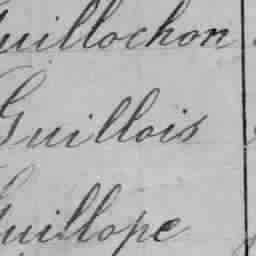 Guillochon
Guillois
Guillope